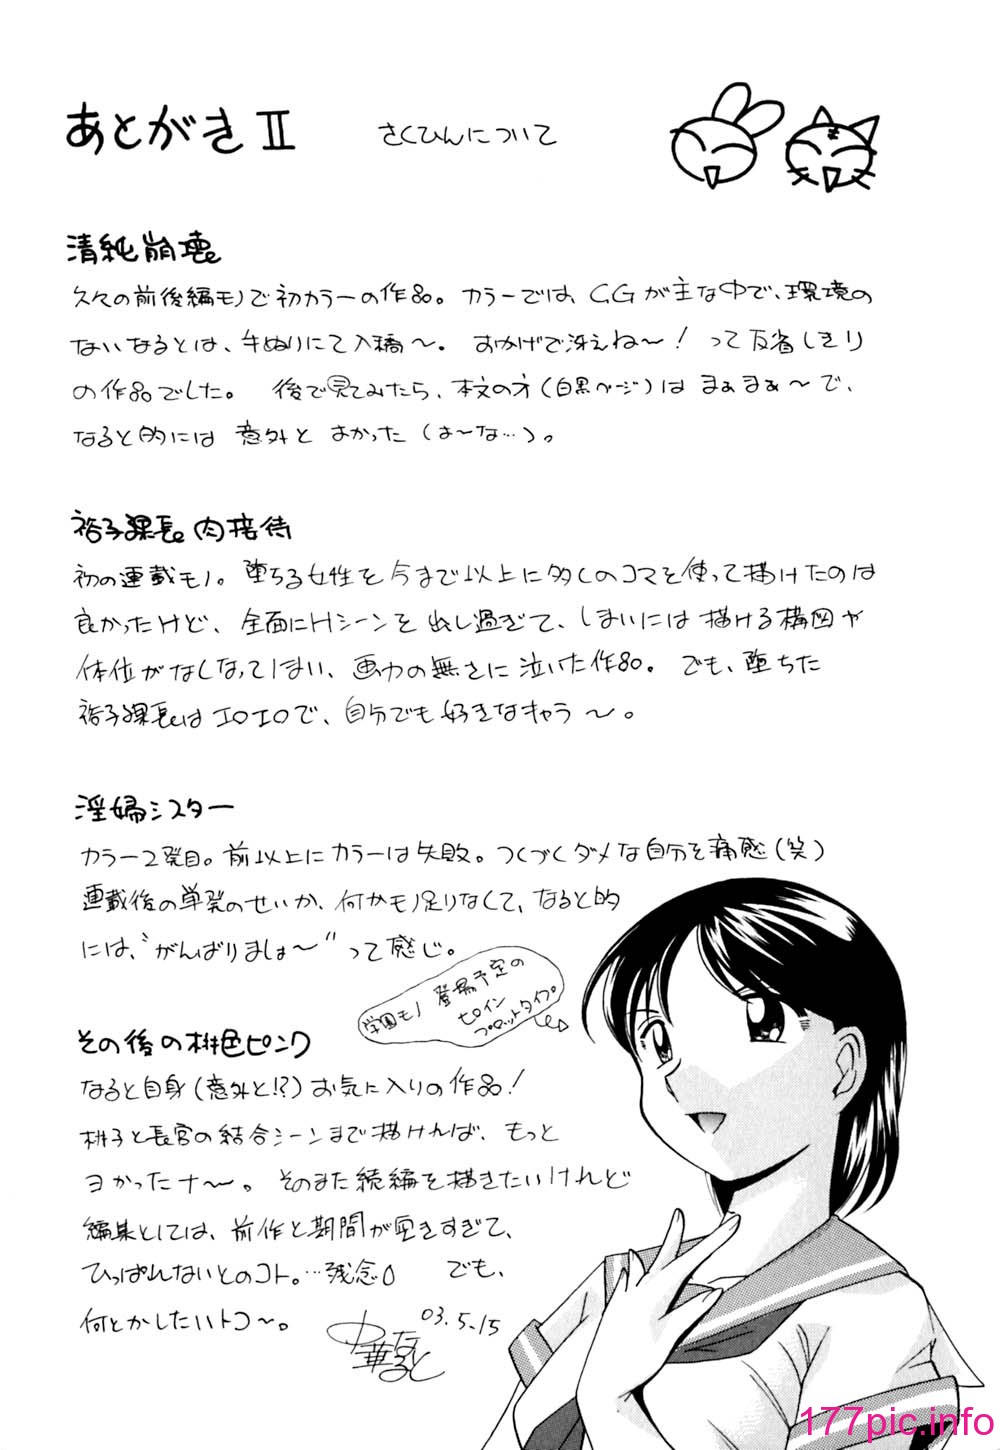 あとがきⅡ さくひんについて
清純崩壊。
久々の前後編モノで初カラーの作品。カラーでは、CGが主な中で、環境の
ないなるとは、手ぬりにて入稿〜。おかげで冴えね〜!って反省しきり
の作品でした。後で見てみたら、本文の方(白黒ページ)はまぁまぁ〜で、
なると的には意外とよかった(は〜な…)。
裕子課長。肉接待
初の連載モノ。堕ちる女性を今まで以上に多くのコマを使って描けたのは
良かったけど、全面にHシーンを出し過ぎて、しまいには描ける構図や
体位がなくなってしまい、画力の無さに泣いた作品。でも、堕ちた
裕子課長はエロエロで、自分でも好きなキャラ〜。
淫婦シスター
カラー2発目。前以上にカラーは失敗。つくづくダメな自分を痛感(笑)
連載後の単発のせいか、何かモノ足りなくて、なると的
には、"がんばりましょ〜"って感じ。
学園モノ登場予定の
ヒロイン
プロットタイプ。
その後の桃色ピンク
なると自身(意外と!?)お気に入りの作品!
桃子と長官の結合シーンまで描ければ、もっと
ヨかったナ〜。そのまた続編を描きたいけれど
編集としては、前作と期間が空きすぎて、
ひっぱれないとのコト。…残念 でも、
何とかしたいトコ〜。
03.5.15
中華なると
177pic.info